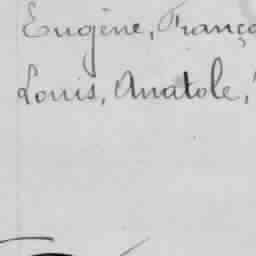 Eugène, Franço
Louis, Anatole,